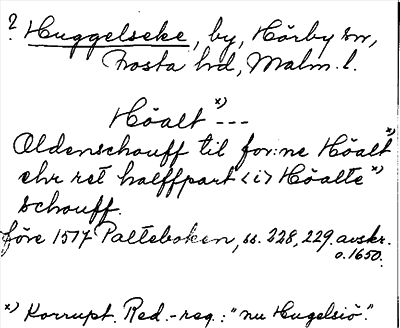 ? Huggelseke, by, Hörby sn,
Frosta hd, Malm. l.
Höalt x) ---
Oldenschouff til for:ne Höalt x)
ehr ret halffpart <i> Höalte x)
schouff.
före 1517 Palteboken, ss. 228, 229. avskr.
o. 1650.
x) Korrupt. Red.-reg.: "nu Hugelsiö".